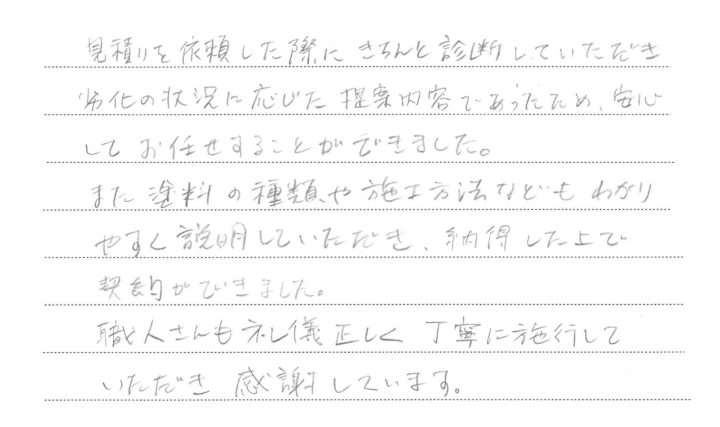 見積りを依頼した際に きちんと診断していただき
劣化の状況に応じた 提案内容であったため、安心
して お任せすることができました。
また 塗料の種類や施工方法なども わかり
やすく説明していただき、納得した上で
契約ができました。
職人さんも礼儀正しく 丁寧に施行して
いただき 感謝しています。